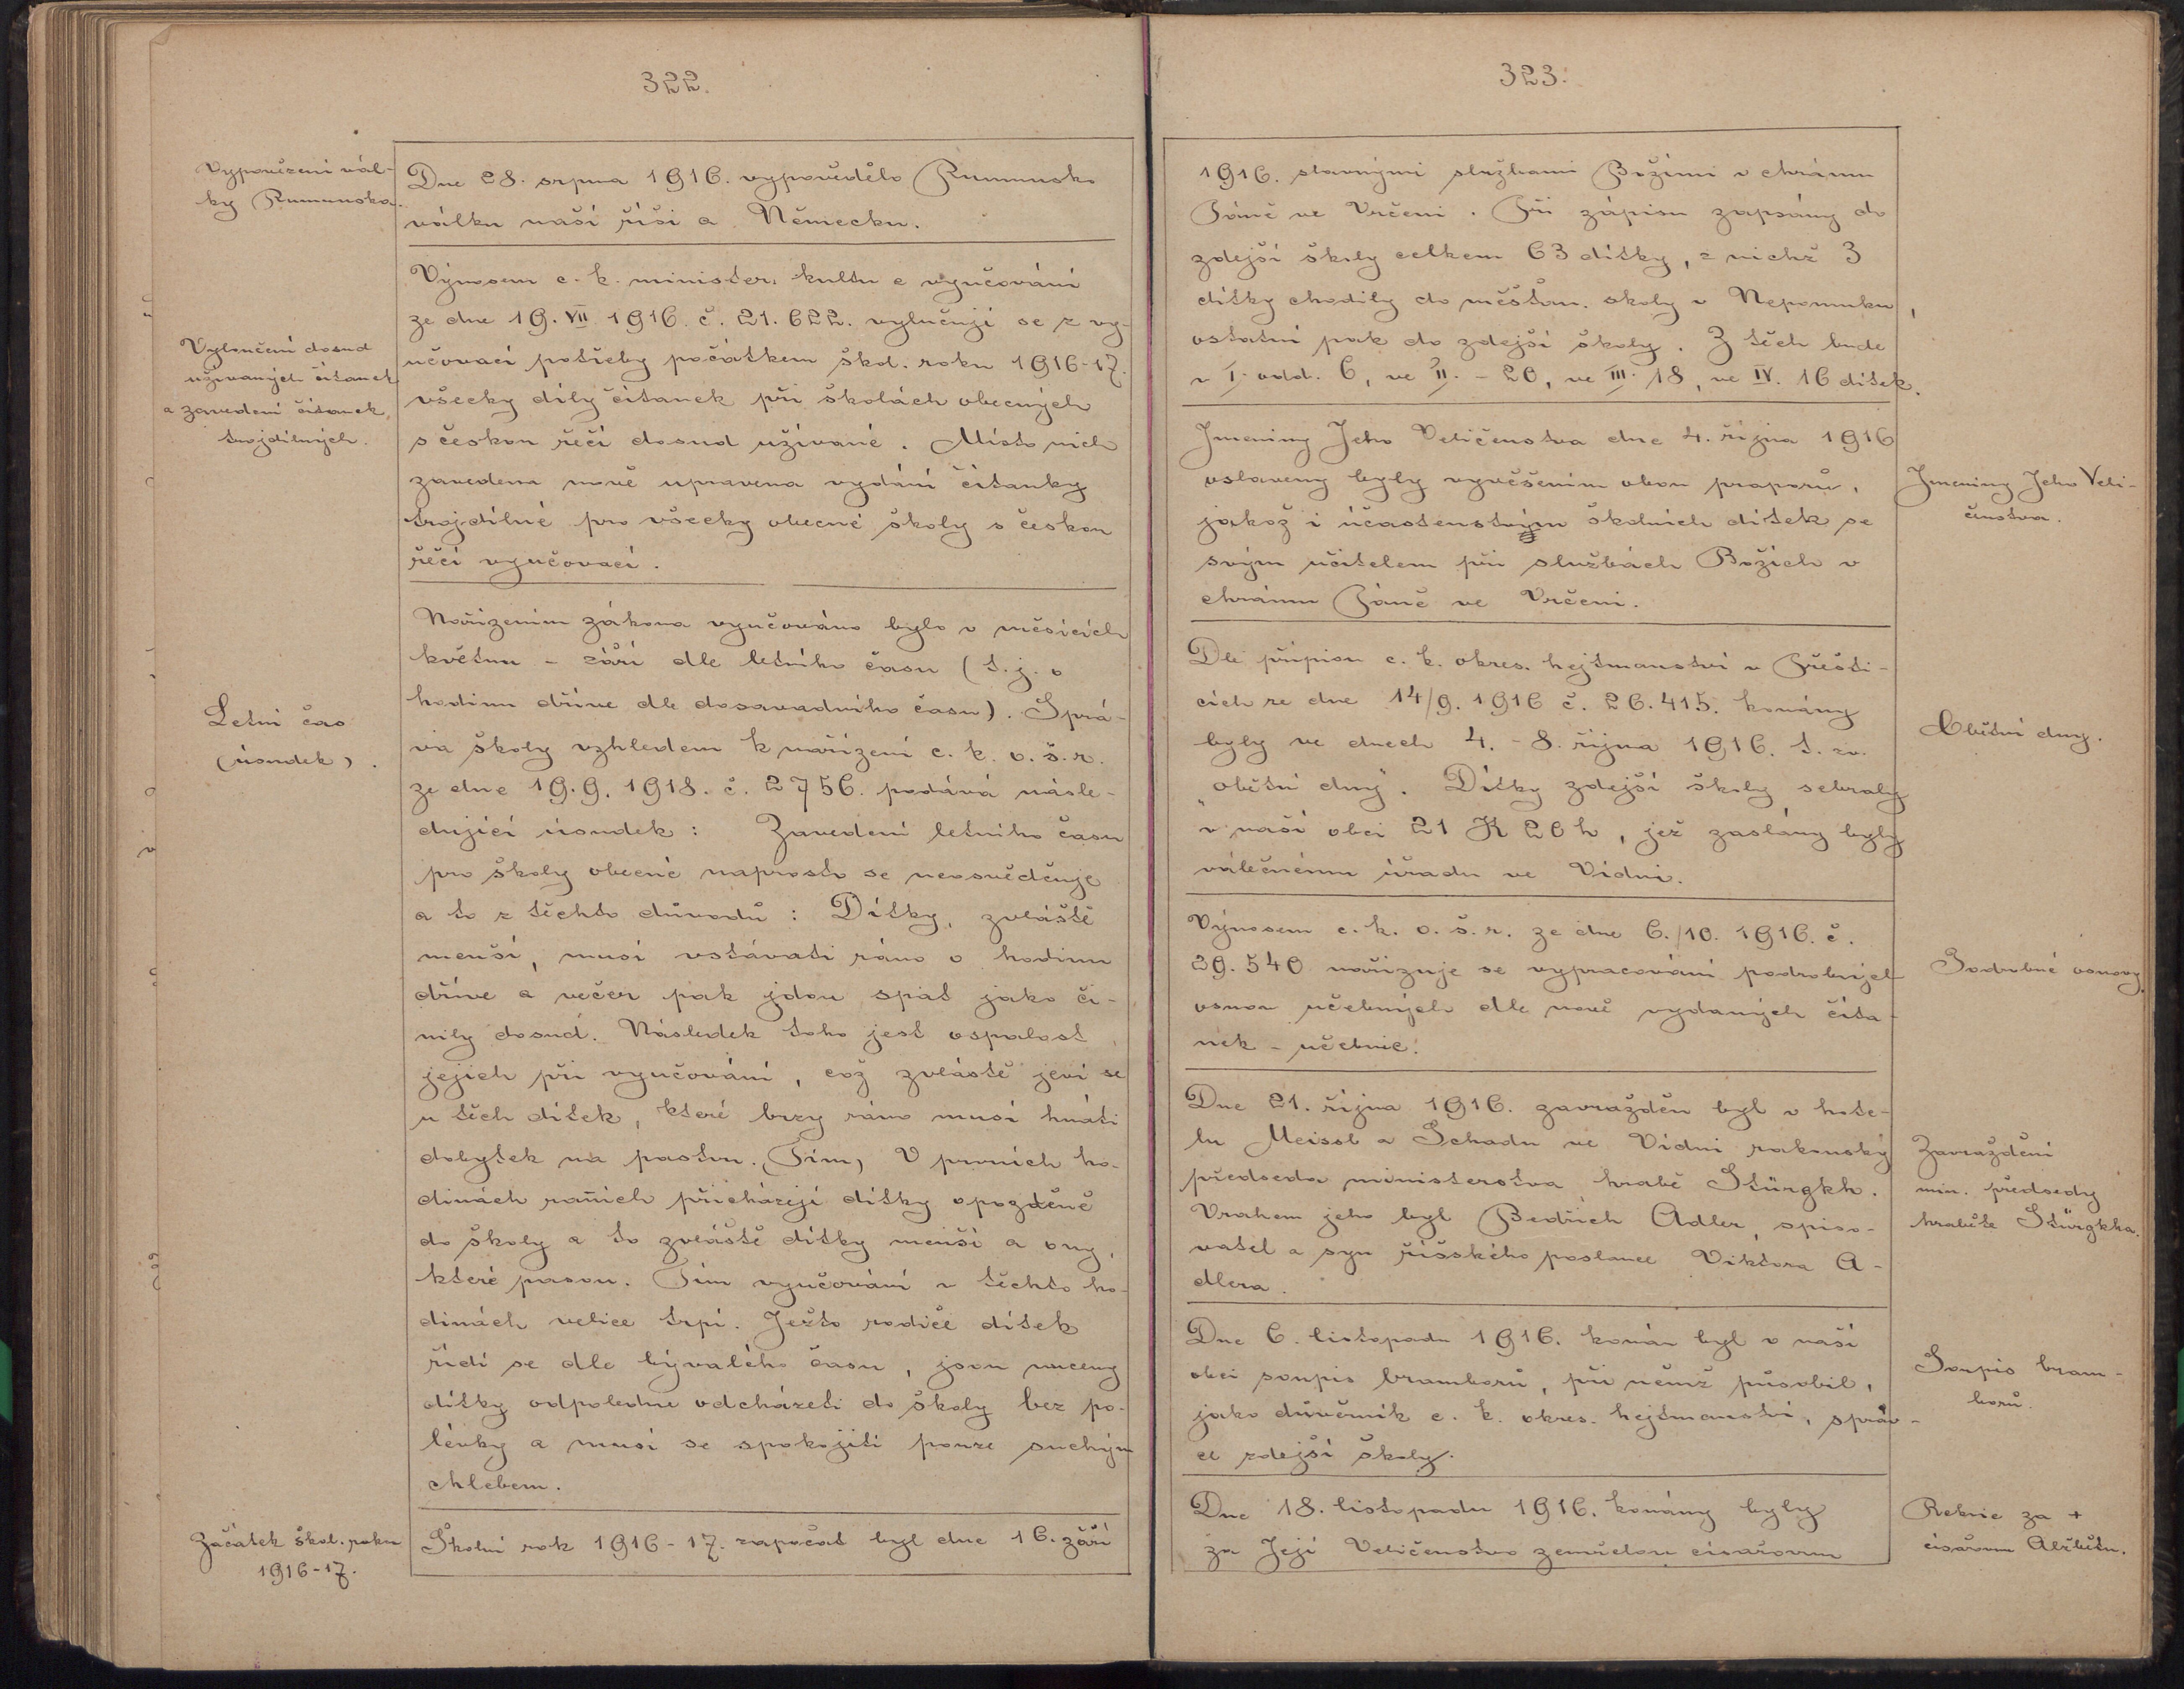 322.
Vypovězení vál-
ky Rumunska.
Dne 28. srpna 1916. vypovědělo Rumunsko
válku naší říši a Německu.
Výnosem c. k. minister. kultu a vyučování
ze dne 19. VII 1916. č. 21.622. vylučují se z vy-
učovací potřeby počátkem škol. roku 1916-17.
všecky díly čítanek při školách obecných
s českou řečí dosud užívané. Místo nich
zavedena nově upravena vydání čítanky
trojdílné pro všecky obecné školy s českou
řečí vyučovací.
Vyloučení dosud
užívaných čítanek
a zavedení čítanek
trojdílných.
Nařízením zákona vyučováno bylo v měsících
květnu - září dle letního času (t. j. o
hodinu dříve dle dosavadního času). Sprá-
va školy vzhledem k nařízení c. k. o. š. r.
ze dne 19. 9. 1918. č. 2756. podává násle-
dující úsudek: Zavedení letního času
pro školy obecné naprosto se neosvědčuje
a to z těchto důvodů: Dítky, zvláště
menší, musí vstávati ráno o hodinu
dříve a večer pak jdou spát jako či-
nily dosud. Následek toho jest ospalost
jejich při vyučování, což zvláště jeví se
u těch dítek, které brzy ráno musí hnáti
dobytek na pastvu. (Tím) V prvních ho-
dinách raních přicházejí dítky opozděně
do školy a to zvláště dítky menší a ony,
které pasou. Tím vyučování v těchto ho-
dinách velice trpí. Ježto rodiče dítek
řídí se dle bývalého času, jsou nuceny
dítky odpoledne odcházeti do školy bez po-
lévky a musí se spokojiti pouze suchým
chlebem.
Letní čas
(úsudek).
Začátek škol. roku
1916-17.
Školní rok 1916-17. započat byl dne 16. září
323.
1916. slavnými službami Božími v chrámu
Páně ve Vrčeni. Při zápisu zapsány do
zdejší školy celkem 63 dítky, z nichž 3
dítky chodily do měšťan. školy v Nepomuku,
ostatní pak do zdejší školy. Z těch bude
v I. odd. 6, ve II. - 20, ve III. 18, ve IV. 16 dítek.
Jmeniny Jeho Veličenstva dne 4. října 1916
oslaveny byly vyvěšením obou praporů,
jakož i účastenstvím školních dítek se
svým učitelem při službách Božích v
chrámu Páně ve Vrčeni.
Jmeniny Jeho Veli-
čenstva.
Dle přípisu c. k. okres. hejtmanství v Přešti-
cích ze dne 14/9. 1916 č. 26.415. konány
byly ve dnech 4. - 8. října 1916. t. zv.
„obětní dny". Dítky zdejší školy sebraly
v naší obci 21 K 20 h, jež zaslány byly
válečnému úřadu ve Vídni.
Obětní dny.
Výnosem c. k. o. š. r. ze dne 6./10. 1916. č.
39.540 nařizuje se vypracování podrobných
osnov učebných dle nově vydaných číta-
nek - učebnic.
Podrobné osnovy.
Dne 21. října 1916. zavražděn byl v hote-
lu Meissl a Schadn ve Vídni rakouský
předseda ministerstva hrabě Stürgkh.
Vrahem jeho byl Bedřich Adler, spiso-
vatel a syn říšského poslance Viktora A-
dlera.
Zavraždění
min. předsedy
hraběte Stürgkha.
Dne 6. listopadu 1916. konán byl v naší
obci soupis bramborů, při němž působil,
jako důvěrník c. k. okres. hejtmanství, správ-
ce zdejší školy.
Soupis bram-
borů.
Dne 18. listopadu 1916. konány byly
za Její Veličenstvo zemřelou císařovnu
Rekvie za +
císařovnu Alžbětu.